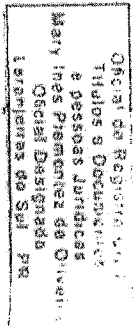 Oficial de Registro
Títulos e Documentos
e pessoas Jurídicas
Mary Ines Piamontez de Oliveira
Oficial Designada
Laranjeiras do Sul PR